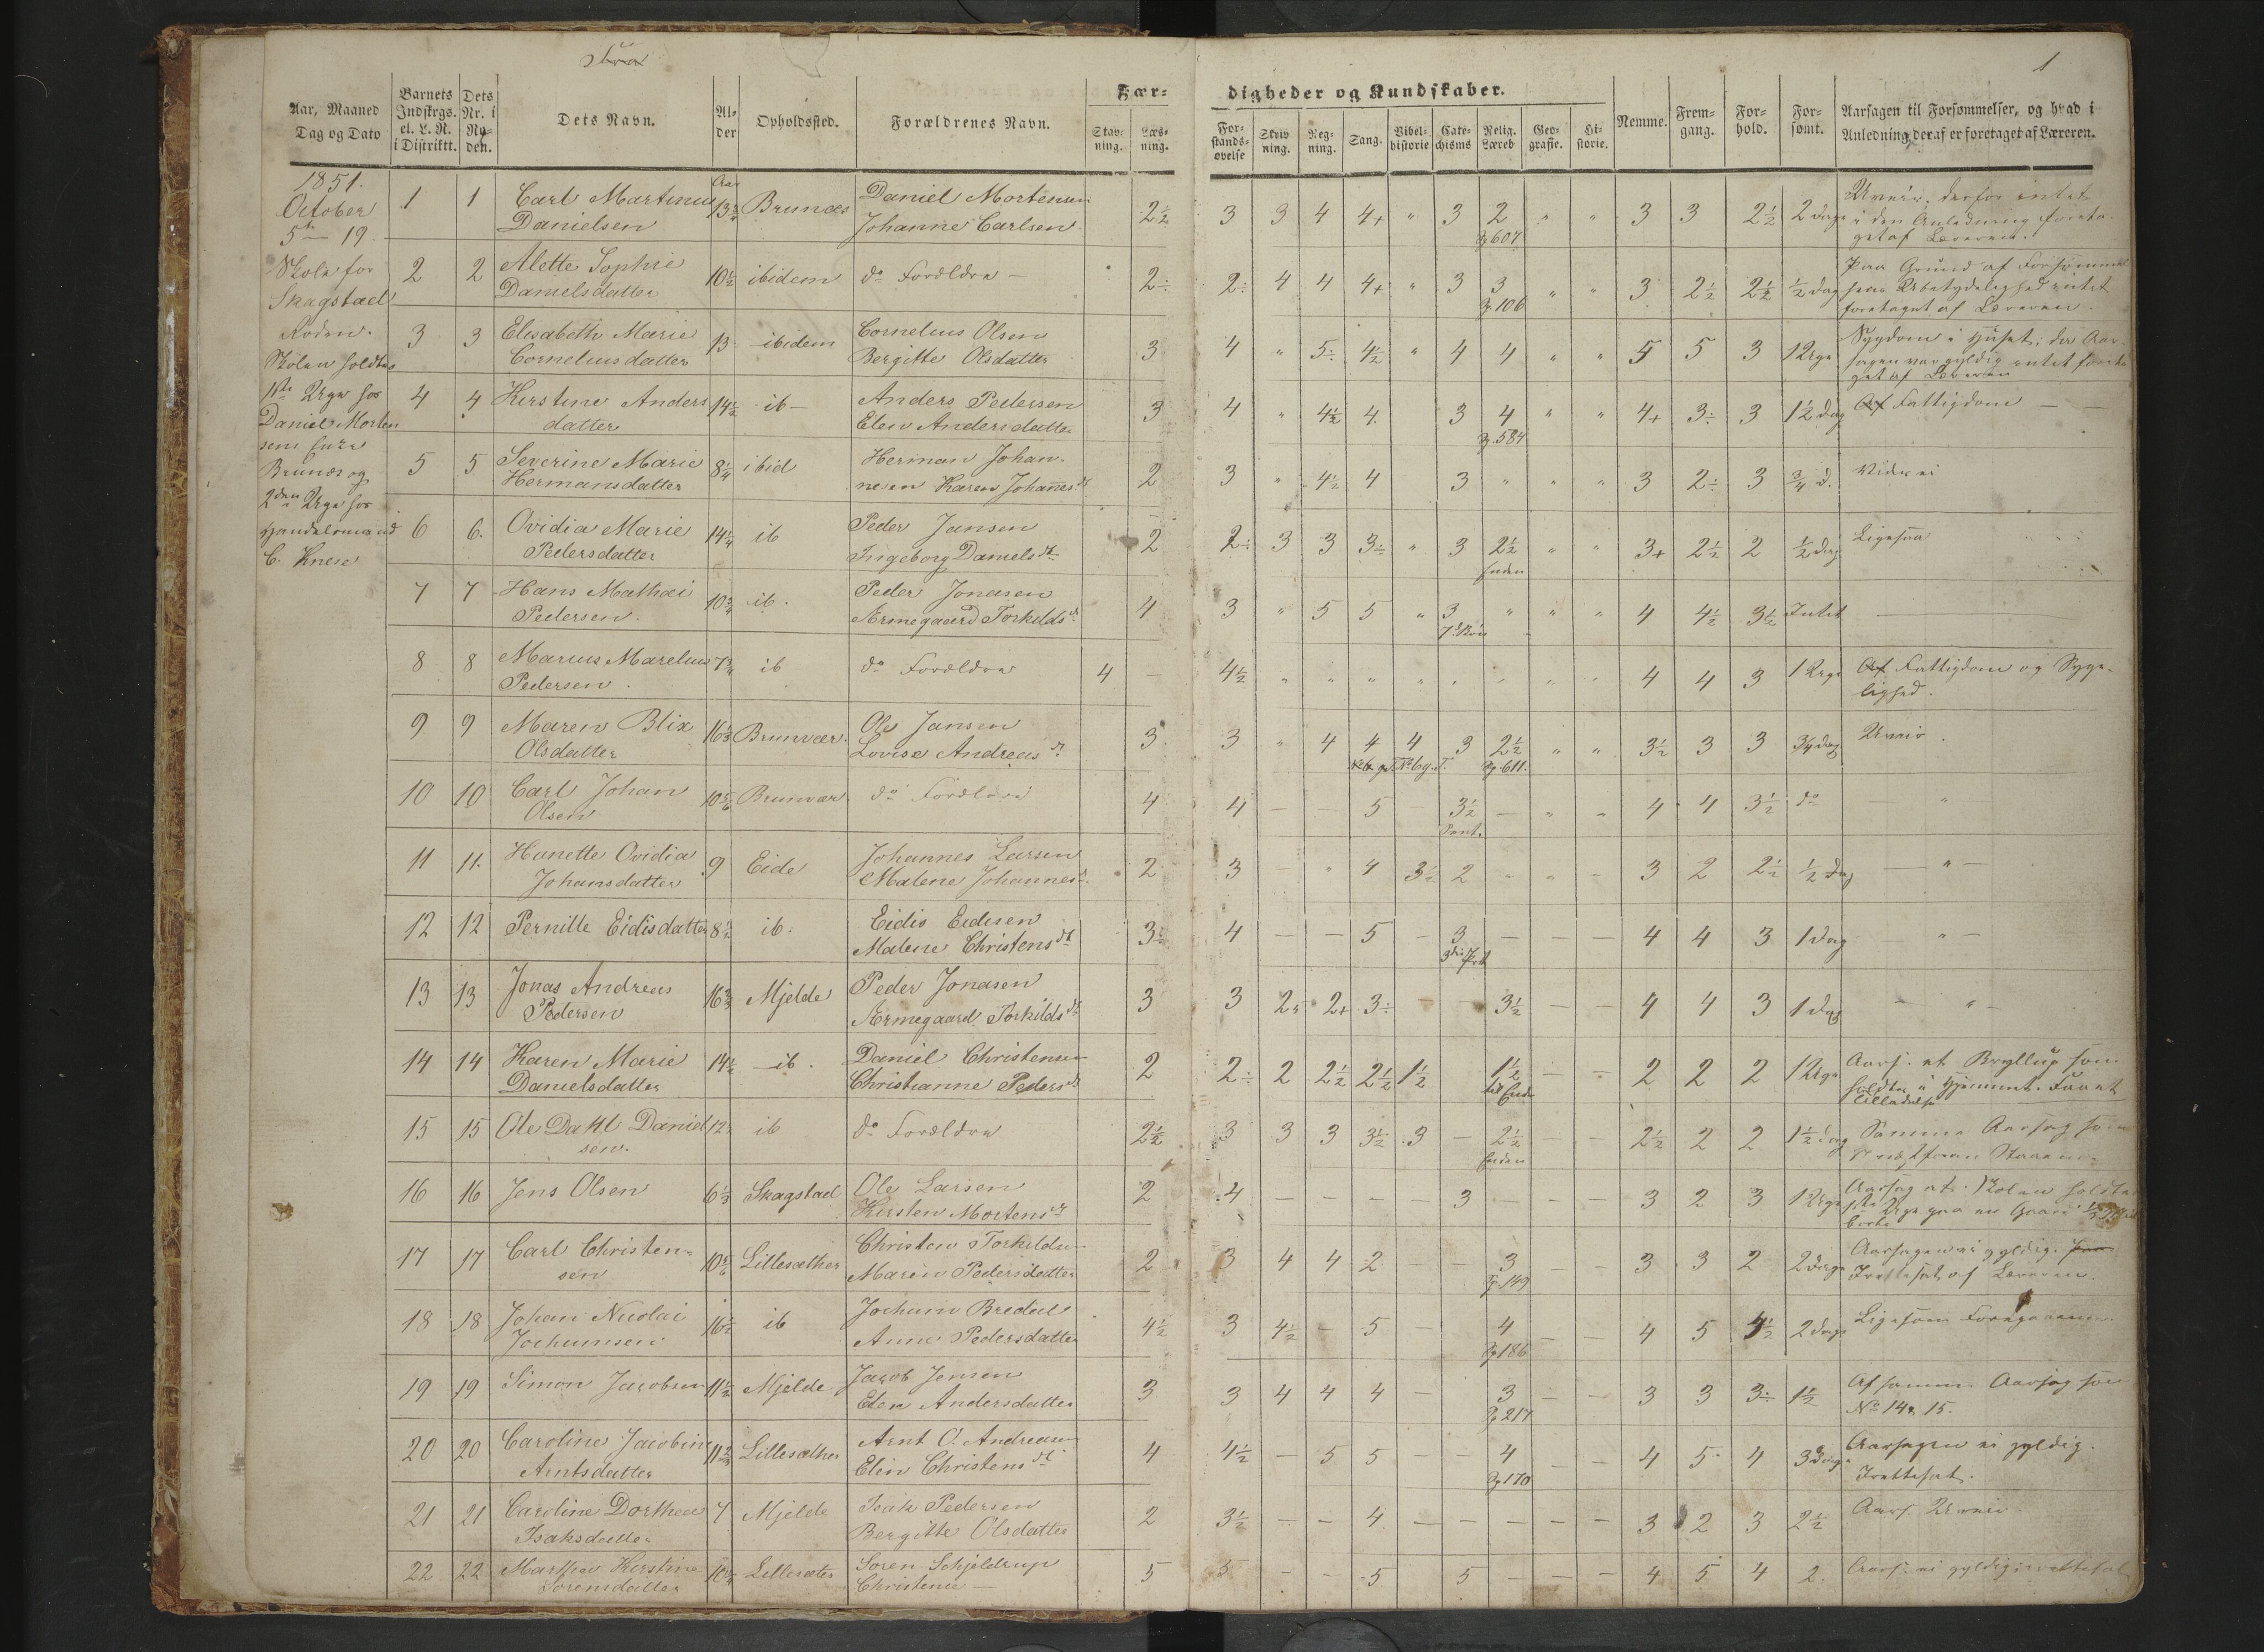 1
Aar, Maaned Tag og Dato
Barnets Indskrgs. el. L. N. i Distriktt.
Dets Nr. i Roden.
Dets Navn.
Alder
Opholdssted.
Forældrenes Navn.
Færdigheder og Kundskaber.
Stavning.
Læsning.
Forstandsøvelse
Skrivning.
Regning.
Sang.
Bibelhistorie
Catechisms
Relig. Læreb
Geografie.
Historie.
Nemme.
Fremgang.
Forhold.
Forsømt.
Aarsagen til Forsømmelser, og hvad i Anledning deraf er foretaget af Læreren.
1851.
October
5te – 19
Skole for
Skagstad
Roden.
Skolen holdtes
1ste Uge hos
Daniel Morten
sens Enke
Brunæs og
2den Uge hos
Handelsmand
C. Knese
1 1 Carl Martinus Danielsen Aar 13 3/4 Brunæs Daniel Mortensen Johanne Carlsen 2½ 3 3 4 4+ " 3 2 " " 3 3 2½ 2 dage Uveir, derfor intet i den Anledning foretaget af Læreren.
P 607
2 2 Alette Sophie Danielsdatter 10½ ibidem do Forældre – 2÷ 2÷ 4 4 4+ " 3 3 " " 3 2½ 2½ ½ dag Paa Grund af Ubetydelighed intet foretaget af Læreren.
P 106
3 3 Elisabeth Marie Corneliusdatter 13 ibidem Cornelius Olsen Bergitte Olsdatter 3 4 " 5÷ 4½ " 4 4 " " 5 5 3 1 Uge Sygdom i Huset; da Aarsagen var gyldig intet foretaget af Læreren
4 4 Kirstine Anders datter 14½ ib – Anders Pedersen Elen Andersdatter 3 4 " 4½ 4. 3 4 " " 4+ 3÷ 3 1½ dag Af Fattigdom – –
P. 584
5 5 Severine Marie Hermansdatter 8¼ ibid Herman Johannesen Karen Johannesdt 2 3 " 4½ 4 3 " " " 3 2÷ 3 ¾ d.
6 6. Ovidia Marie Pedersdatter 14¼ ib Peder Jansen Ingeborg Danielsdt 2 2÷ 3 3 3÷ " 3 2½ " " 3+ 2½ 2 ½ dag Ligesaa
Enden
7 7 Hans Mathæi Pedersen. 10¾ ib. Peder Jonasen Armegaard Torkildsdt 4 3 " 5 5 " 3 " " " 4 4½ 3½ Intet
8 8 Marius Marelius Pedersen. 7¾ ib do Forældre 4 – 4½ " " " " " " " " 4 4 3 1 Uge Af Fattigdom og Sygelighed.
9 9 Maren Blix Olsdatter Brunvær. Ole Jansen Lovise Andreasdt 3 3 " 4 4 4 3 2½ " " 3½ 3 3 3/4 dag Uveir.
P. 611.
10 10 Carl Johan Olsen 10 5/6 Brunvær. do Forældre 4 4 – – 5 3½ – " " 4 4 3½ do – "
11 11. Hanette Ovidia Johansdatter 9 Eide Johannes Larsen Malene Johannesdt. 2 3 – " 4 3½ 2 " " – 3 2 2½ ½ dag – " –
12 12 Pernille Eidisdatter 8½ ib. Eidis Eidisen Malene Christensdt 3÷ 4 – – 5 – 3 – – – 4 4 3 1 dag " –
13 13 Jonas Andreas Pedersen Mjelde Peder Jonasen Armegaard Torkildsdt 3 3 2÷ 2+ 3÷ – – 3½ – – 4 4 3 1 dag – " –
14 14 Karen Marie Danielsdatter 14½ – ib. Daniel Christensen Christianne Pedersdt 2 2÷ 2 2½ 2½ 1½ 1½ – – 2 2 2 1 Uge Aars. et Bryllup som holdtes i Hjemmet. Faaet Tilladelse
til Enden
15 15 Ole Dahl Danielsen. 12 ib do Forældre 2½ 3 3 3 3½ 3 – 2½ – – 2½ 2 2 1½ dag Samme Aarsag som
Enden
16 16 Jens Olsen 6⅓ Skagstad Ole Larsen Kirsten Mortensdt 2 4 – – – – 3 – – – 3 2 3 1 Uge Aarsag at Skolen holdtes 1ste Uge paa en Gaard
17 17 Carl Christensen 10 5/6 Lillesæther Christen Torkildsen Maren Pedersdatter 2 3 4 4 2 – – 3 – – 3 3 2 2 dage Aarsagen ei gyldig. Irettesat af Læreren.
P. 149
18 18 Johan Nicolai Jochumsen ib Jochum Bredal Anne Pedersdatter 4½ 3 4½ – 5 – 4 – – 4 5 4½ 2 dage Ligesom Foregaaende.
P 186
19 19 Simon Jacobsen 11½ Mjelde Jacob Jensen Elen Andersdatter 3 3 4 4 4 – 3 – – 3 3 3÷ 1½ Af samme Aarsag som No 14 & 15.
P 217
20 20 Caroline Jacobine Arntsdatter 11⅔ Lillesæther Arnt O. Andreasen Elen Christensdt 4 4½ – 5 5 – 4 – – 4 5 4 3 dage Aarsagen ei gyldig. Irettesat.
P 170
21 21 Caroline Dorthea Isaksdatter 7 Mjelde Isak Pedersen Bergitte Olsdatter 2 3½ – – 4 – – – – – 3 2 3 2½ Aars. Uveir
22 22 Kirstine Sorensdatter Lillesæter Soren Schjeldrup Christence – 5 5 – – 5 5 – – – 4 5 4 2. Aars. ei gyldig irettesat